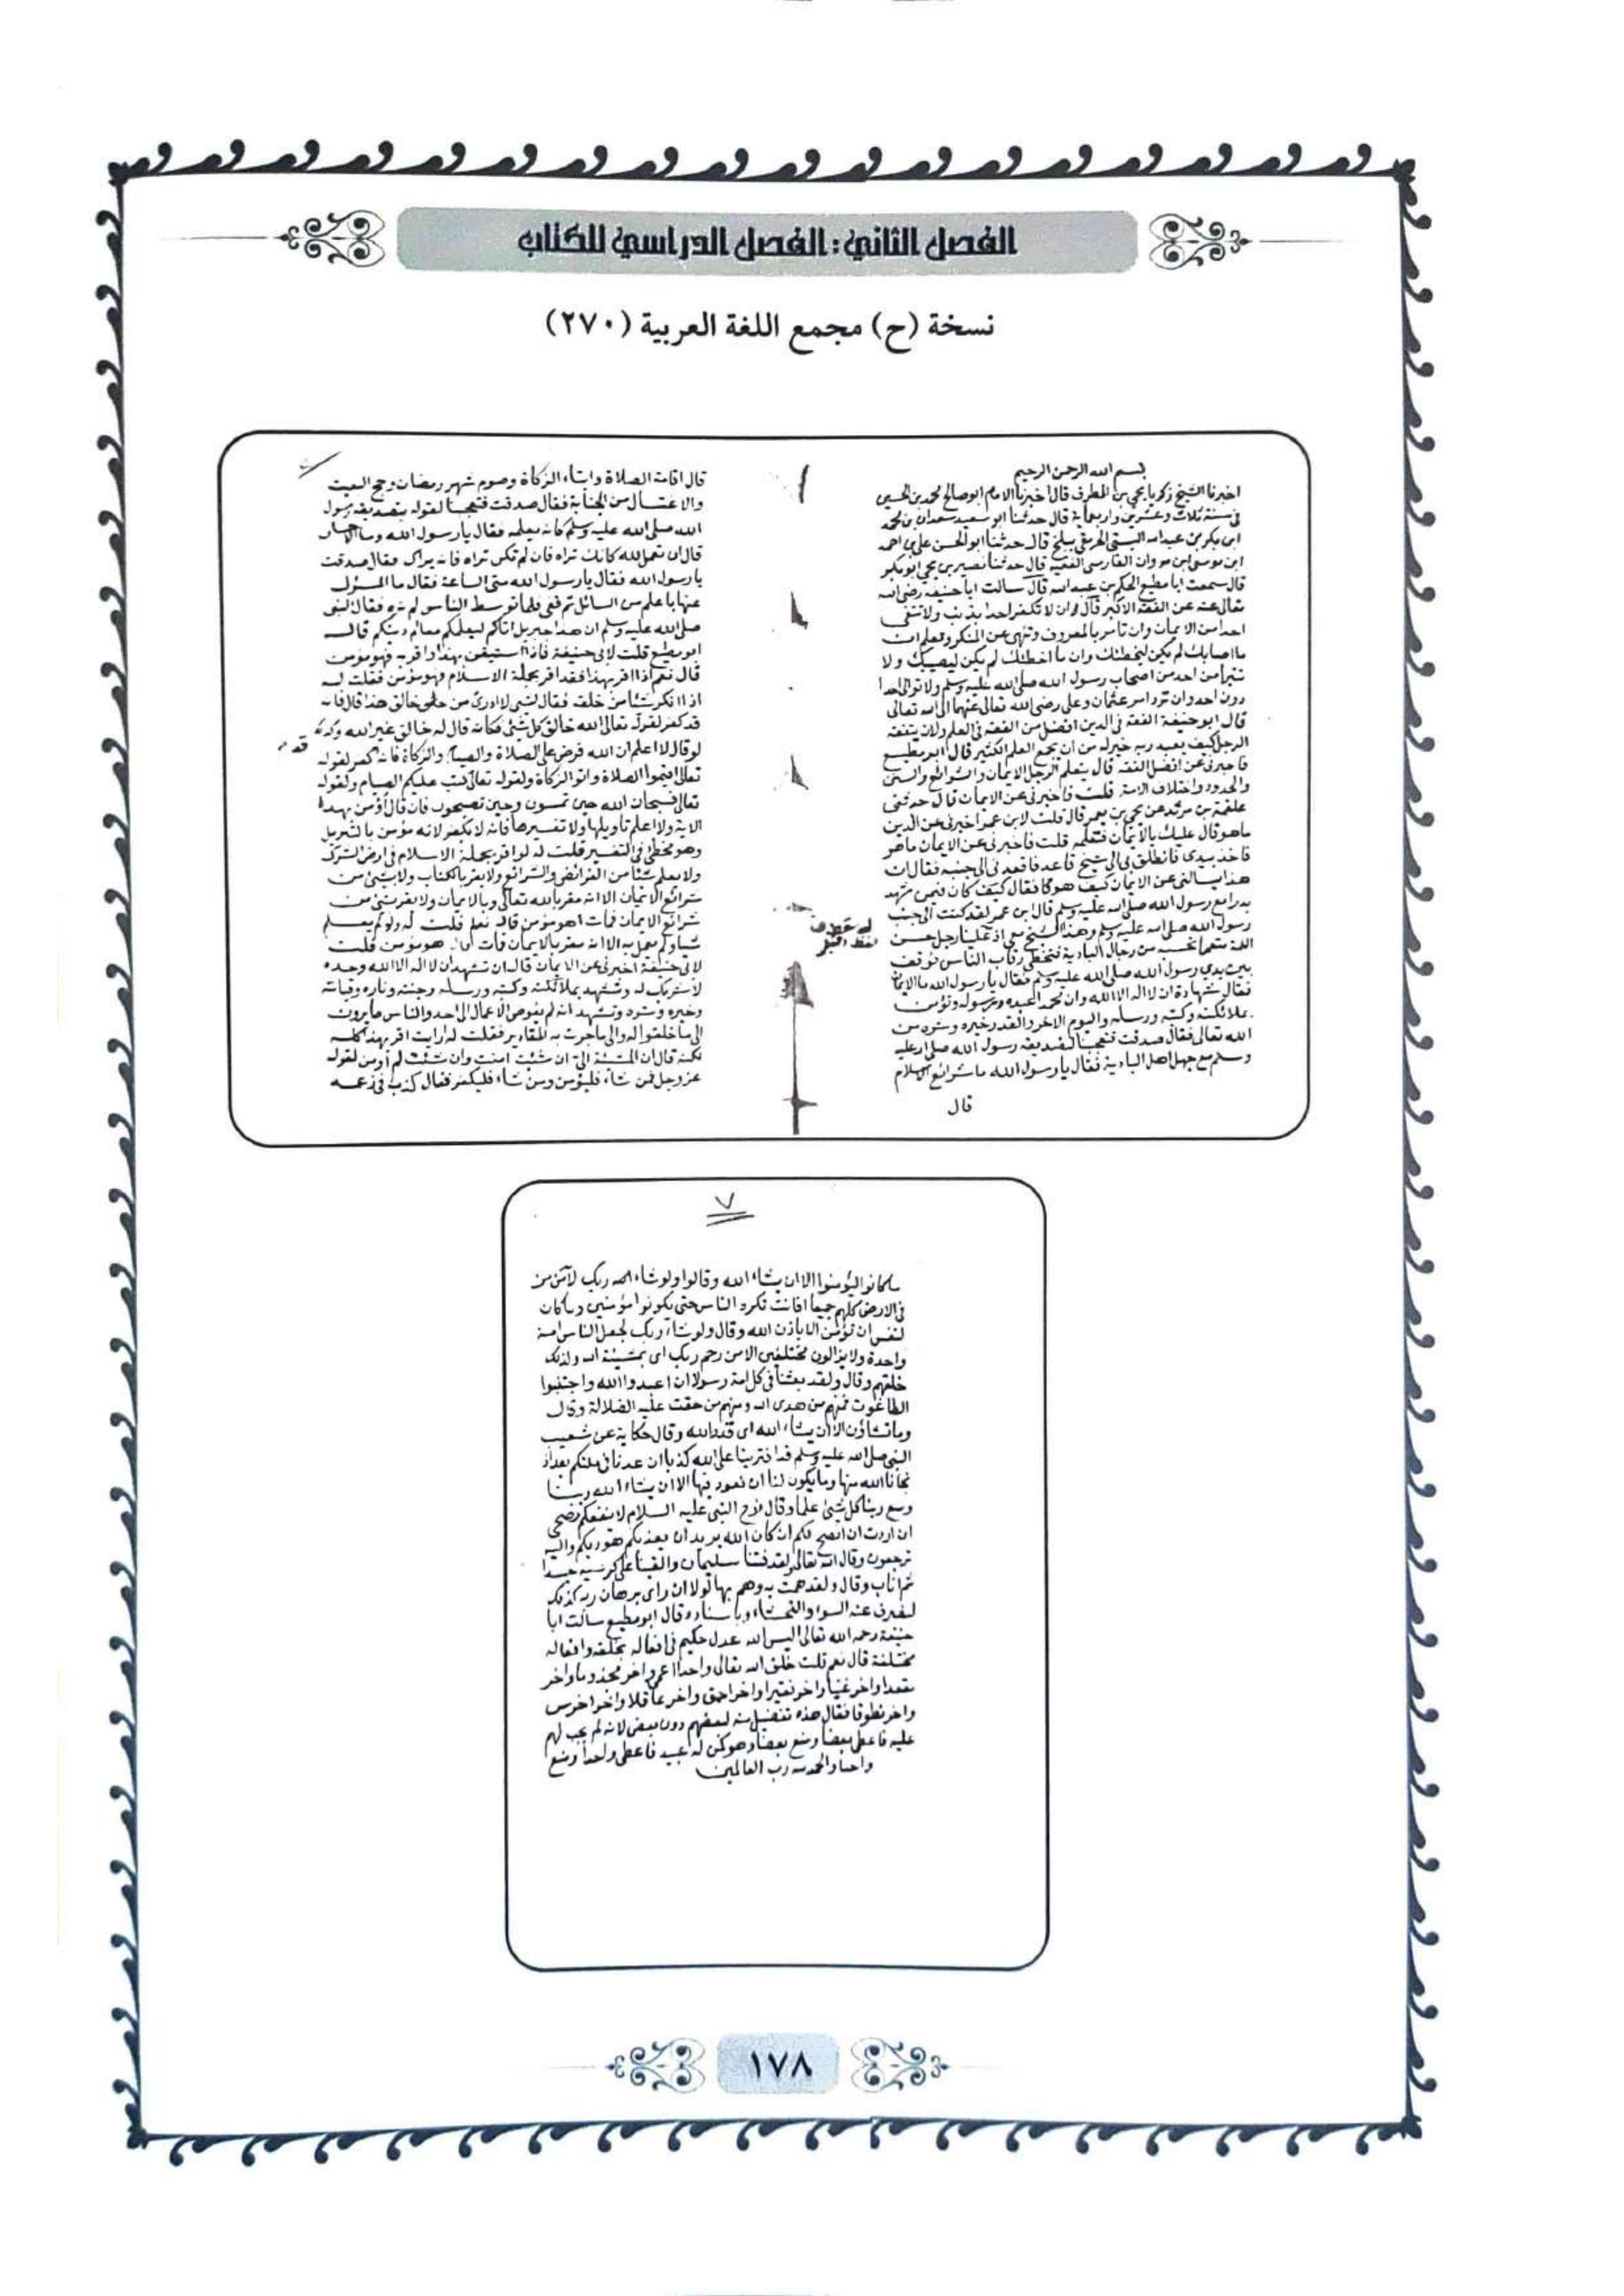 الفصل الثاني : الفصل الدراسي للكتاب
نسخة (ح) مجمع اللغة العربية (٢٧٠)
بسم الله الرحمن الرحيم
اخبرنا الشيخ زكريا يحيى بن المطرف قال اخبرنا الامام ابوصالح محمد بن الحسين
فى سنة ثلاث وعشرين واربعماية قال حدثنا ابو سعيد سعدان بن محمد
ابن بكر بن عبدالله البستى ببلخ قال حدثنا ابو الحسن على بن احمد
ابن موسى ابن مروان الفارسى الفقيه قال حدثنا نصير بن يحيى ابو بكر
قال سمعت ابا مطيع الحكم بن عبدالله قال سالت ابا حنيفه رضى الله
تعالى عنه عن الفقه الاكبر قال ان لا تكفر احدا بذنب ولا تنفى
احدا من الايمان وان تامر بالمعروف وتنهى عن المنكر وتعلم ان
ما اصابك لم يكن ليخطئك وان ما اخطئك لم يكن ليصيبك ولا
تتبرأ من احد من اصحاب رسول الله صلى الله عليه وسلم ولا توالى احدا
دون احد وان ترد امر عثمان وعلى رضى الله تعالى عنهما الى الله تعالى
قال ابو حنيفة الفقه فى الدين افضل من الفقه فى العلم ولان يتفقه
الرجل كيف يعبد ربه خير له من ان يجمع العلم الكثير قال ابو مطيع
فاخبرنى عن افضل الفقه قال يتعلم الرجل الايمان والشرائع والسنن
والحدود واختلاف الامة قلت فاخبرنى عن الايمان قال حدثنى
علقمة بن مرثد عن يحيى بن يعمر قال قلت لابن عمر اخبرنى عن الدين
ماهو قال عليك بالايمان فتعلمه قلت فاخبرنى عن الايمان ماهو
فاخذ بيدى فانطلق بى الى شيخ فاقعدنى الى جنبه فقال ان
هذا يسالنى عن الايمان كيف هو فقال كان فيمن شهد
بدرا مع رسول الله صلى الله عليه وسلم قال ابن عمر لقد كنت الى جنب
رسول الله صلى الله عليه وسلم وهذا الشيخ معى اذ علينا رجل حسن
اللمة متعما نحسبه من رجال البادية فتخطى رقاب الناس فوقف
بين يدى رسول الله صلى الله عليه وسلم فقال يا رسول الله ما الايمان
فقال شهادة ان لا اله الا الله وان محمدا عبده ورسوله وتؤمن
بملائكته وكتبه ورسله واليوم الاخر والقدر خيره وشره من
الله تعالى فقال صدقت فتعجبنا لتصديقه رسول الله صلى الله عليه
وسلم مع جهل اهل البادية فقال يا رسول الله ما شرائع الاسلام
قال
قال اقامة الصلاة وايتاء الزكاة وصوم شهر رمضان وحج البيت
والاغتسال من الجنابة فقال صدقت فتعجبنا لقوله بتصديقه رسول
الله صلى الله عليه وسلم كانه يعلمه فقال يا رسول الله وما الاحسان
قال ان تعمل لله كانك تراه فان لم تكن تراه فانه يراك فقال صدقت
يا رسول الله فقال يا رسول الله متى الساعة فقال ما المسؤل
عنها باعلم من السائل ثم فلما توسط الناس لم نره فقال النبى
صلى الله عليه وسلم ان هذا جبريل اتاكم ليعلمكم معالم دينكم قال
ابو مطيع قلت لابى حنيفة فاذا استيقن بهذا واقر به فهو مؤمن
قال نعم اذا اقر بهذا فقد اقر بجملة الاسلام وهو مؤمن فقلت له
اذا انكر شئا من خلقه فقال لا ادرى من خالق هذا قال فانه
قد كفر لقوله تعالى الله خالق كل شئى فكانه قال له خالق غير الله وكذ
لو قال لا اعلم ان الله فرض على الصلاة والصيام والزكاة فانه كفر لقوله
تعالى اقيموا الصلاة واتوا الزكاة ولقوله تعالى كتب عليكم الصيام ولقوله
تعالى فسبحان الله حين تمسون وحين تصبحون فان قال اؤمن بهذه
الاية ولا اعلم تاويلها ولا تفسيرها فانه لا يكفر لانه مؤمن بالتنزيل
وهو مخطئ فى التفسير قلت له لو اقر بجملة الاسلام فى ارض الشرك
ولا يعلم شئا من الفرائض والشرائع ولا يقر بالكتاب ولا بشئى من
شرائع الايمان الا انه مقر بالله تعالى وبالايمان ولا يقر بشئى من
شرائع الايمان فمات اهو مؤمن قال نعم قلت له ولو لم يعلم
شئا ولم يعمل به الا انه مقر بالايمان فمات قال هو مؤمن قلت
لابى حنيفة اخبرنى عن الايمان قال ان تشهد ان لا اله الا الله وحده
لا شريك له وتشهد بملائكته وكتبه ورسله وجنته وناره وقيامته
وخيره وشره وتشهد انه لم يفوض الاعمال الى احد والناس صايرون
الى ما خلقوا له والى ما جرت به المقادير فقلت له ارايت ان اقر بهذا كله
لكنه قال ان المشيئة الى ان شئت امنت وان شئت لم أومن لقوله
عز وجل فمن شاء فليؤمن ومن شاء فليكفر فقال كذب فى زعمه
٧
ما كانوا ليؤمنوا الا ان يشاء الله وقالوا ولو شاء ربك لآمن من
فى الارض كلهم جميعا افانت تكره الناس حتى يكونوا مؤمنين وما كان
لنفس ان تؤمن الا باذن الله وقال ولو شاء ربك لجعل الناس امة
واحدة ولا يزالون مختلفين الا من رحم ربك اى بمشيئة الله ولذلك
خلقهم وقال ولقد بعثنا فى كل امة رسولا ان اعبدوا الله واجتنبوا
الطاغوت فمنهم من هدى الله ومنهم من حقت عليه الضلالة وقال
وما تشاؤن الا ان يشاء الله اى قدره الله وقال حكاية عن شعيب
النبى صلى الله عليه وسلم قد افترينا على الله كذبا ان عدنا فى ملتكم بعد اذ
نجانا الله منها وما يكون لنا ان نعود فيها الا ان يشاء الله ربنا
وسع ربنا كل شئى علما وقال نوح النبى عليه السلام لا ينفعكم نصحى
ان اردت ان انصح لكم ان كان الله يريد ان هو ربكم واليه
ترجعون وقال الله تعالى ولقد فتنا سليمان والقينا على كرسيه جسدا
ثم اناب وقال ولقد همت به وهم بها لولا ان راى برهان ربه كذلك
لنصرف عنه السوء والفحشاء وباسناده قال ابو مطيع سالت ابا
حنيفة رحمه الله تعالى اليس الله عدل حكيم فى افعاله بخلقه وافعاله
مختلفة قال نعم قلت خلق الله تعالى واحدا اعمى واخر مجذوما واخر
مقعدا واخر غنيا واخر فقيرا واخر احمق واخر عاقلا واخر اخرس
واخر نطوقا فقال هذه تفضيل منه لبعضهم دون بعض لانه لم يجب لهم
عليه فاعطى بعضا ومنع بعضا وهو كمن له عبيد فاعطى واحدا ومنع
واحدا والحمد لله رب العالمين
١٧٨